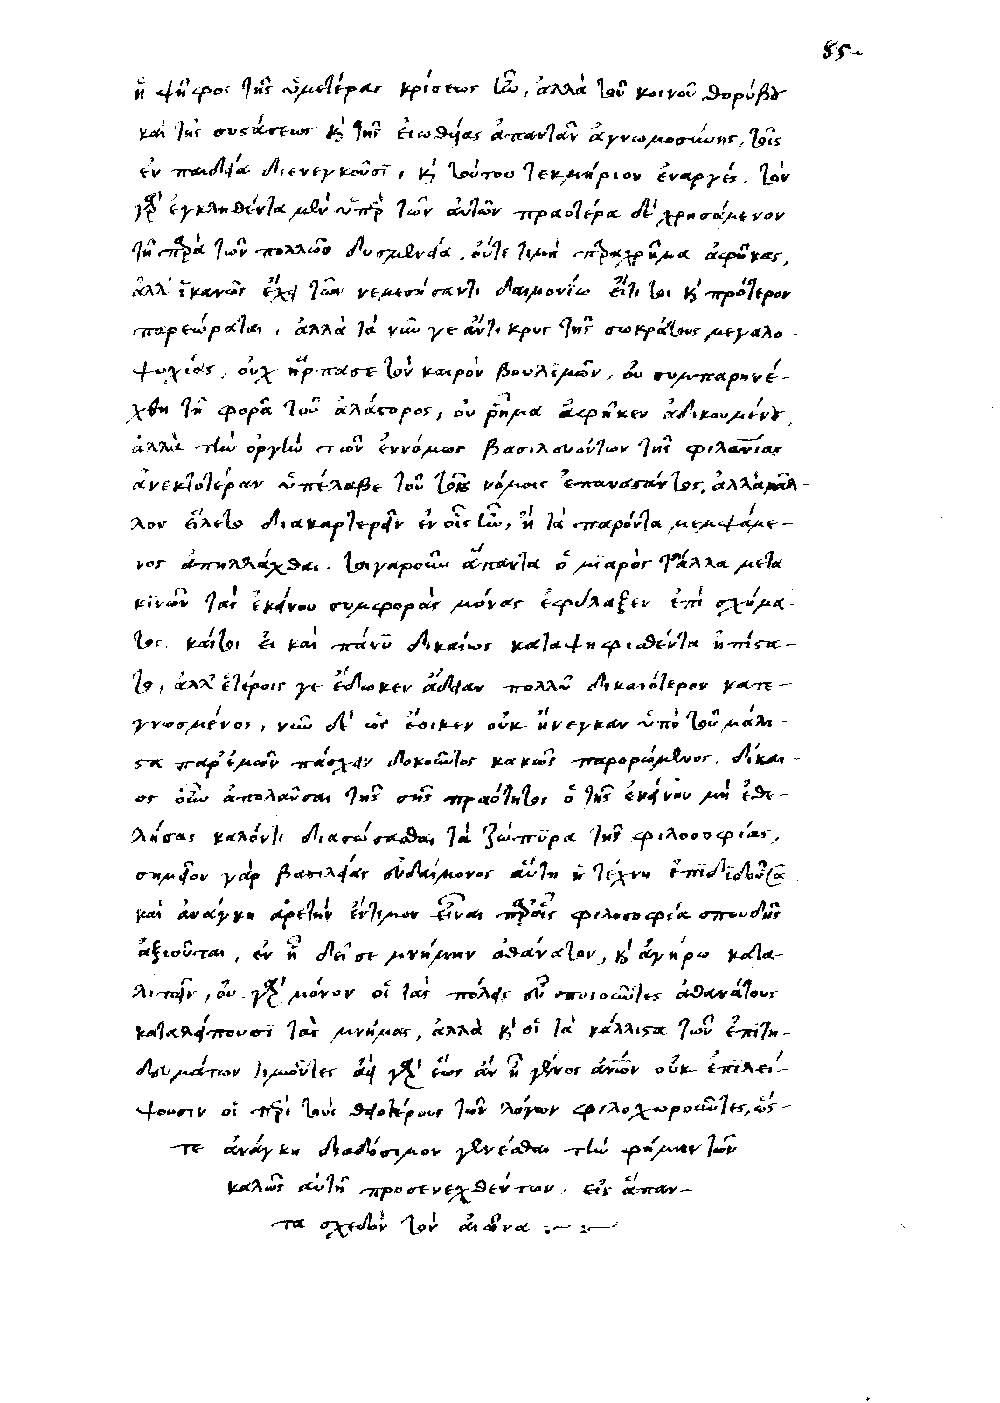 85
ἡ ψῆφος τῆς ὑμετέρας κρίσεως ἦν, ἀλλὰ τοῦ κοινοῦ θορύβου
καὶ τῆς συστάσεως καὶ τῆς εἰωθυίας ἀπαντᾶν ἀγνωμοσύνης, τοῖς
ἐν παιδείᾳ διενεγκοῦσι, καὶ τούτου τεκμήριον ἐναργές. τὸν
γὰρ ἐγκληθέντα μὲν ὑπὲρ τῶν αὐτῶν πραοτέρα δὲ χρησάμενον
τῇ παρὰ τῶν πολλῶν δυσμενείᾳ, οὔτε τιμῇ παραχρῆμα ἀφῆκας,
ἀλλ' ἱκανῶς ἔχει τῶ νεμεσήσαντι δαιμονίω εἴ τι τοι καὶ πρότερον
παρεώραται, ἀλλὰ τὰ νῦν γε ἄντικρυς τῆς σωκράτους μεγαλο-
ψυχίας, οὐχ ἥρπασε τὸν καιρὸν βουλιμῶν, οὐ συμπαρηνέ-
χθη τῇ φορᾷ τοῦ ἀλάστορος, οὐ ῥῆμα ἀφῆκεν ἀδικουμένου,
ἀλλὰ τὴν ὀργὴν τῶν ἐννόμως βασιλευόντων τῆς φιλανίας
ἀνεκτοτέραν ὑπέλαβε τοῦ τοῖς νόμοις ἐπαναστάντος, ἀλλὰ μᾶλ-
λον εἵλετο διακαρτερεῖν ἐν οἷς ἦν, ἢ τὰ παρόντα μεμψάμε-
νος ἀπηλλάχθαι. τοιγαροῦν ἅπαντα ὁ μιαρὸς τἄλλα μετα
κινῶν τὰς ἐκείνου συμφορὰς μόνας ἐφύλαξεν ἐπὶ σχήμα-
τος. καίτοι εἰ καὶ πάνυ δικαίως καταψηφισθέντα ἠπίστα-
το, ἀλλ' ἑτέροις γε ἔδωκεν ἄδειαν πολλῶ δικαιότερον κατε-
γνωσμένοι, νῦν δὲ ὡς ἔοικεν οὐκ ἤνεγκαν ὑπὸ τοῦ μάλι-
στα παρ' ἐμῶν πάσχειν δοκοῦντος κακῶς παρορώμενος. δίκαι-
ος οὖν ἀπολαῦσαι τῆς σῆς πραότητος ὁ τῆς ἐκείνου μὴ ἐθε-
λήσας καλόντι διασώσασθαι τὰ ζώπυρα τῆς φιλοσοφίας,
σημεῖον γὰρ βασιλείας εὐδαίμονος αὕτη ἡ τέχνη ἐπιδιδοῦσα
καὶ ἀνάγκη ἀρετὴν ἔντιμον εἶναι παρ' οἷς φιλοσοφία σπουδῆς
ἀξιοῦται, ἐν ᾗ δεῖ σε μνήμην ἀθάνατον, καὶ ἀγήρω κατα-
λιπεῖν, οὐ γὰρ μόνον οἱ τὰς πόλεις εὖ σποιοῦντες ἀθανάτους
καταλείπουσι τὰς μνήμας, ἀλλὰ καὶ οἱ τὰ κάλλιστα τῶν ἐπιτη-
δευμάτων τιμῶντες ἀεὶ γὰρ ἕως ἂν ᾖ γένος ἀνῶν οὐκ ἐπιλεί-
ψουσιν οἱ περὶ τοὺς θειοτέρους τῶν λόγων φιλοχωροῦντες, ὥς-
τε ἀνάγκη διαδόσιμον γενέσθαι τὴν φήμην τῶν
καλῶς αὐτῇ προσενεχθέντων. εἰς ἅπαν-
τα σχεδὸν τὸν αἰῶνα :—:—